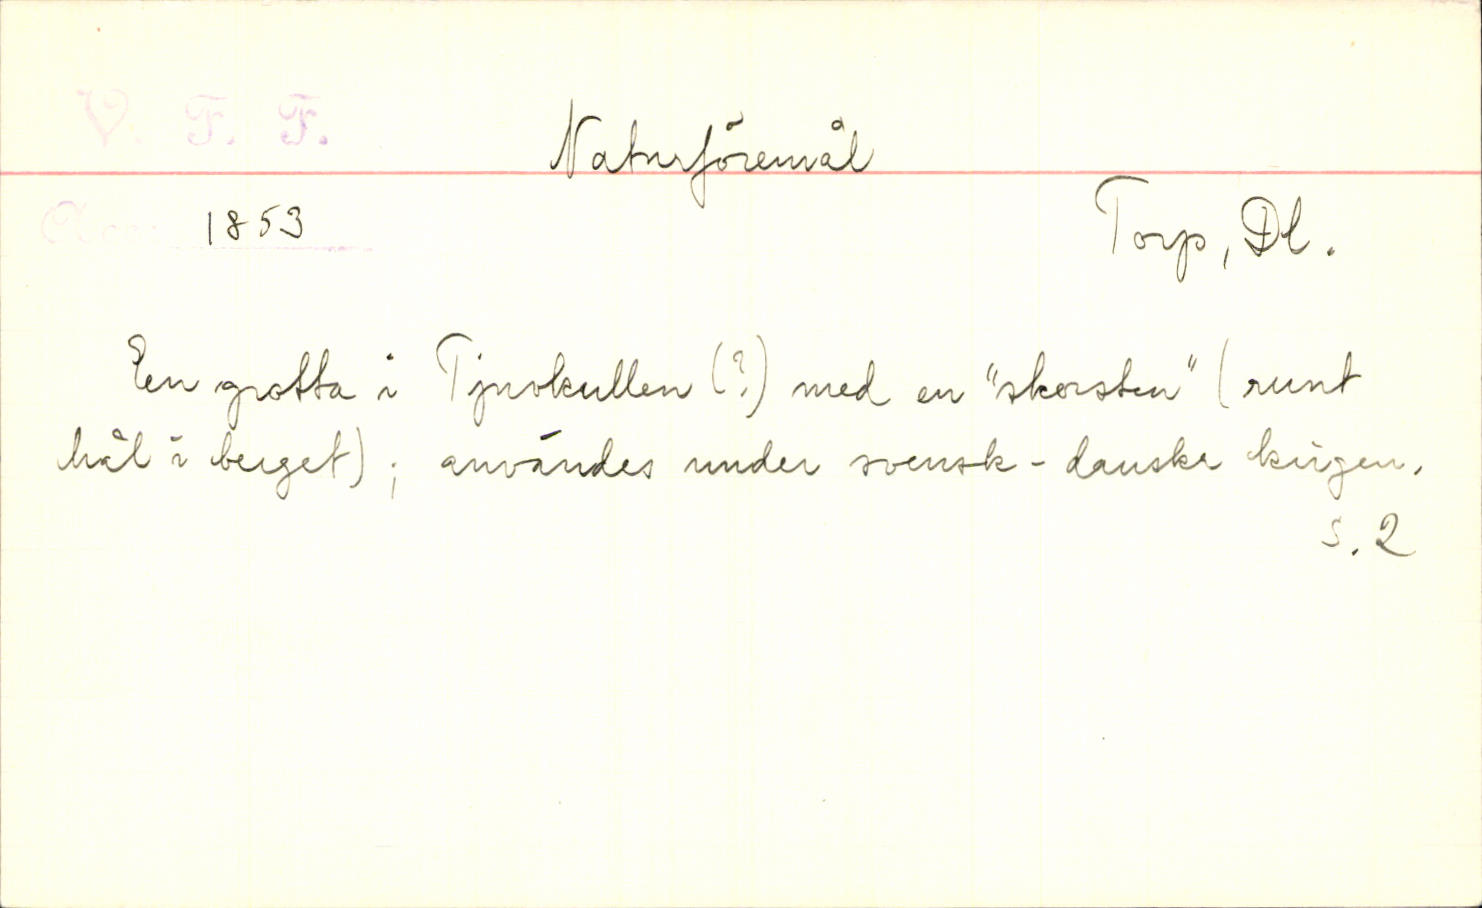 V. F. F.
Naturföremål
Acc. 1853
Torp, Dl.
En grotta i Tjuvkullen (?) med en "skorsten" (runt
hål i berget); användes under svensk-danska krigen.
s. 2